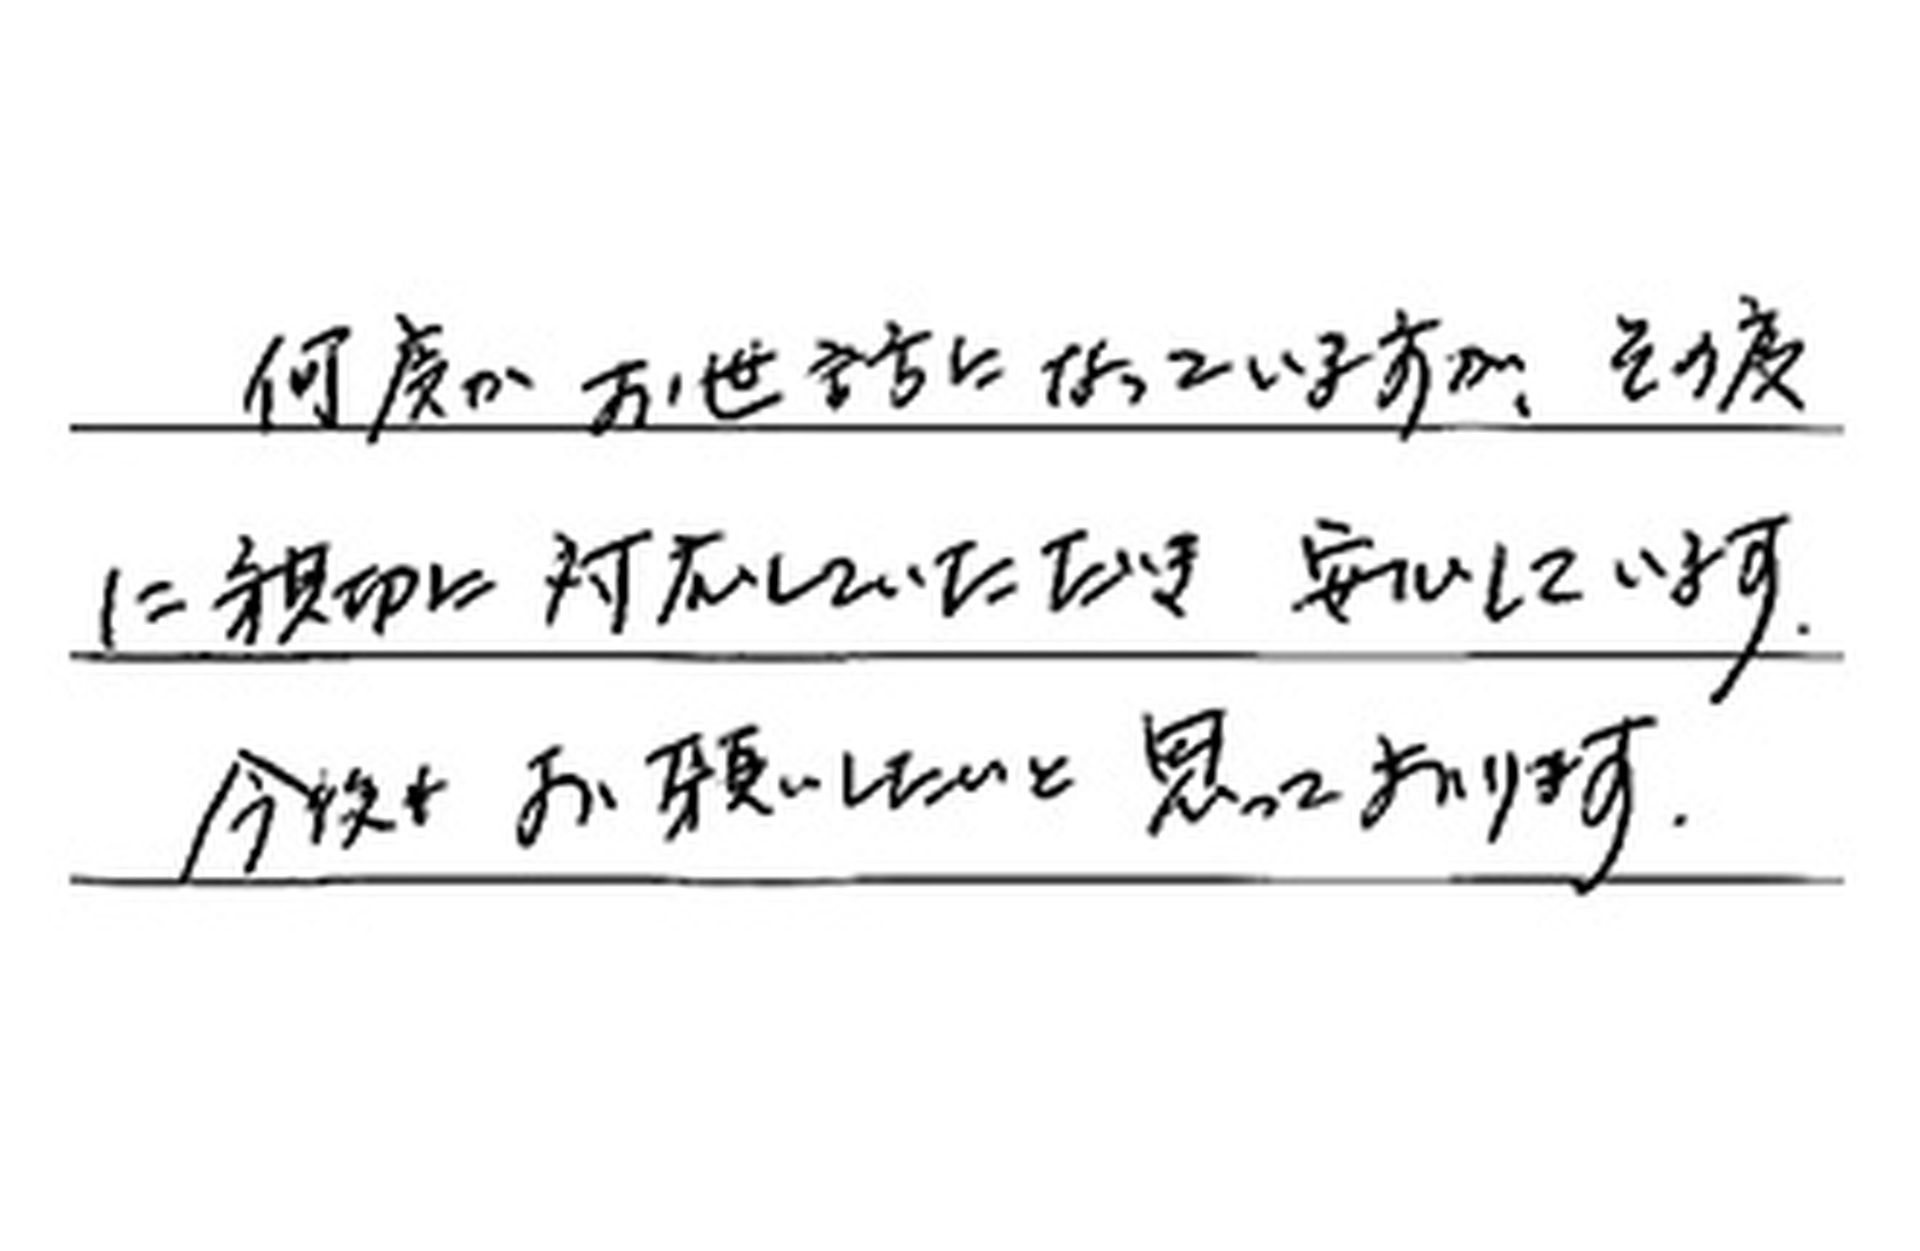 何度かお世話になっていますが、その度
に親切に対応していただき安心しています.
今後もお願いしたいと思っております.